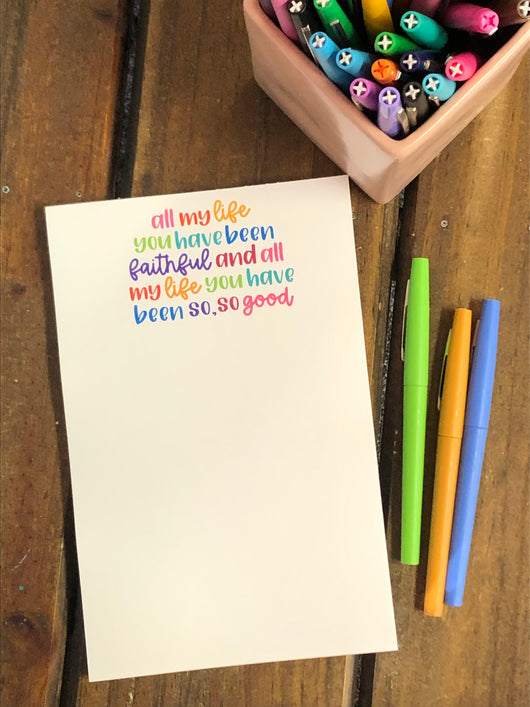 all my life
you have been
faithful and all
my life you have
been so, so good